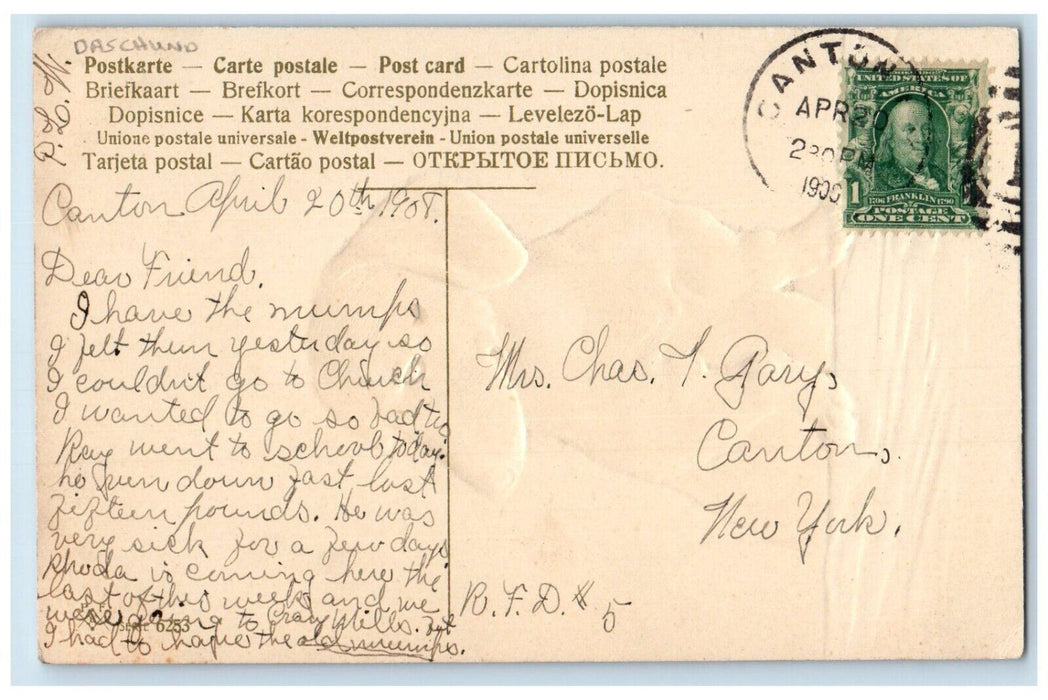 DASCHUND
P. L. N.
Postkarte — Carte postale — Post card — Cartolina postale
Briefkaart — Brefkort — Correspondenzkarte — Dopisnica
Dopisnice — Karta korespondencyjna — Levelező-Lap
Unione postale universale - Weltpostverein - Union postale universelle
Tarjeta postal — Cartão postal — ОТКРЫТОЕ ПИСЬМО.
CANTON
APR
230PM
UNITED STATES OF
AMERICA
1
1706 FRANKLIN 1790
POSTAGE
ONE CENT
Canton April 20th 1908.
Dear Friend.
I have the mumps
I felt them yesterday so
I couldn't go to Church
I wanted to go so bad to
Ray went to school today.
he run down fast, lost
fifteen pounds. He was
very sick for a few days
Rhoda is coming here the
last of this week and we
were going to Crary Mills.
I had to have the old mumps.
6253
Mrs. Chas. T. Gary,
Canton,
New York.
R. F. D. # 5